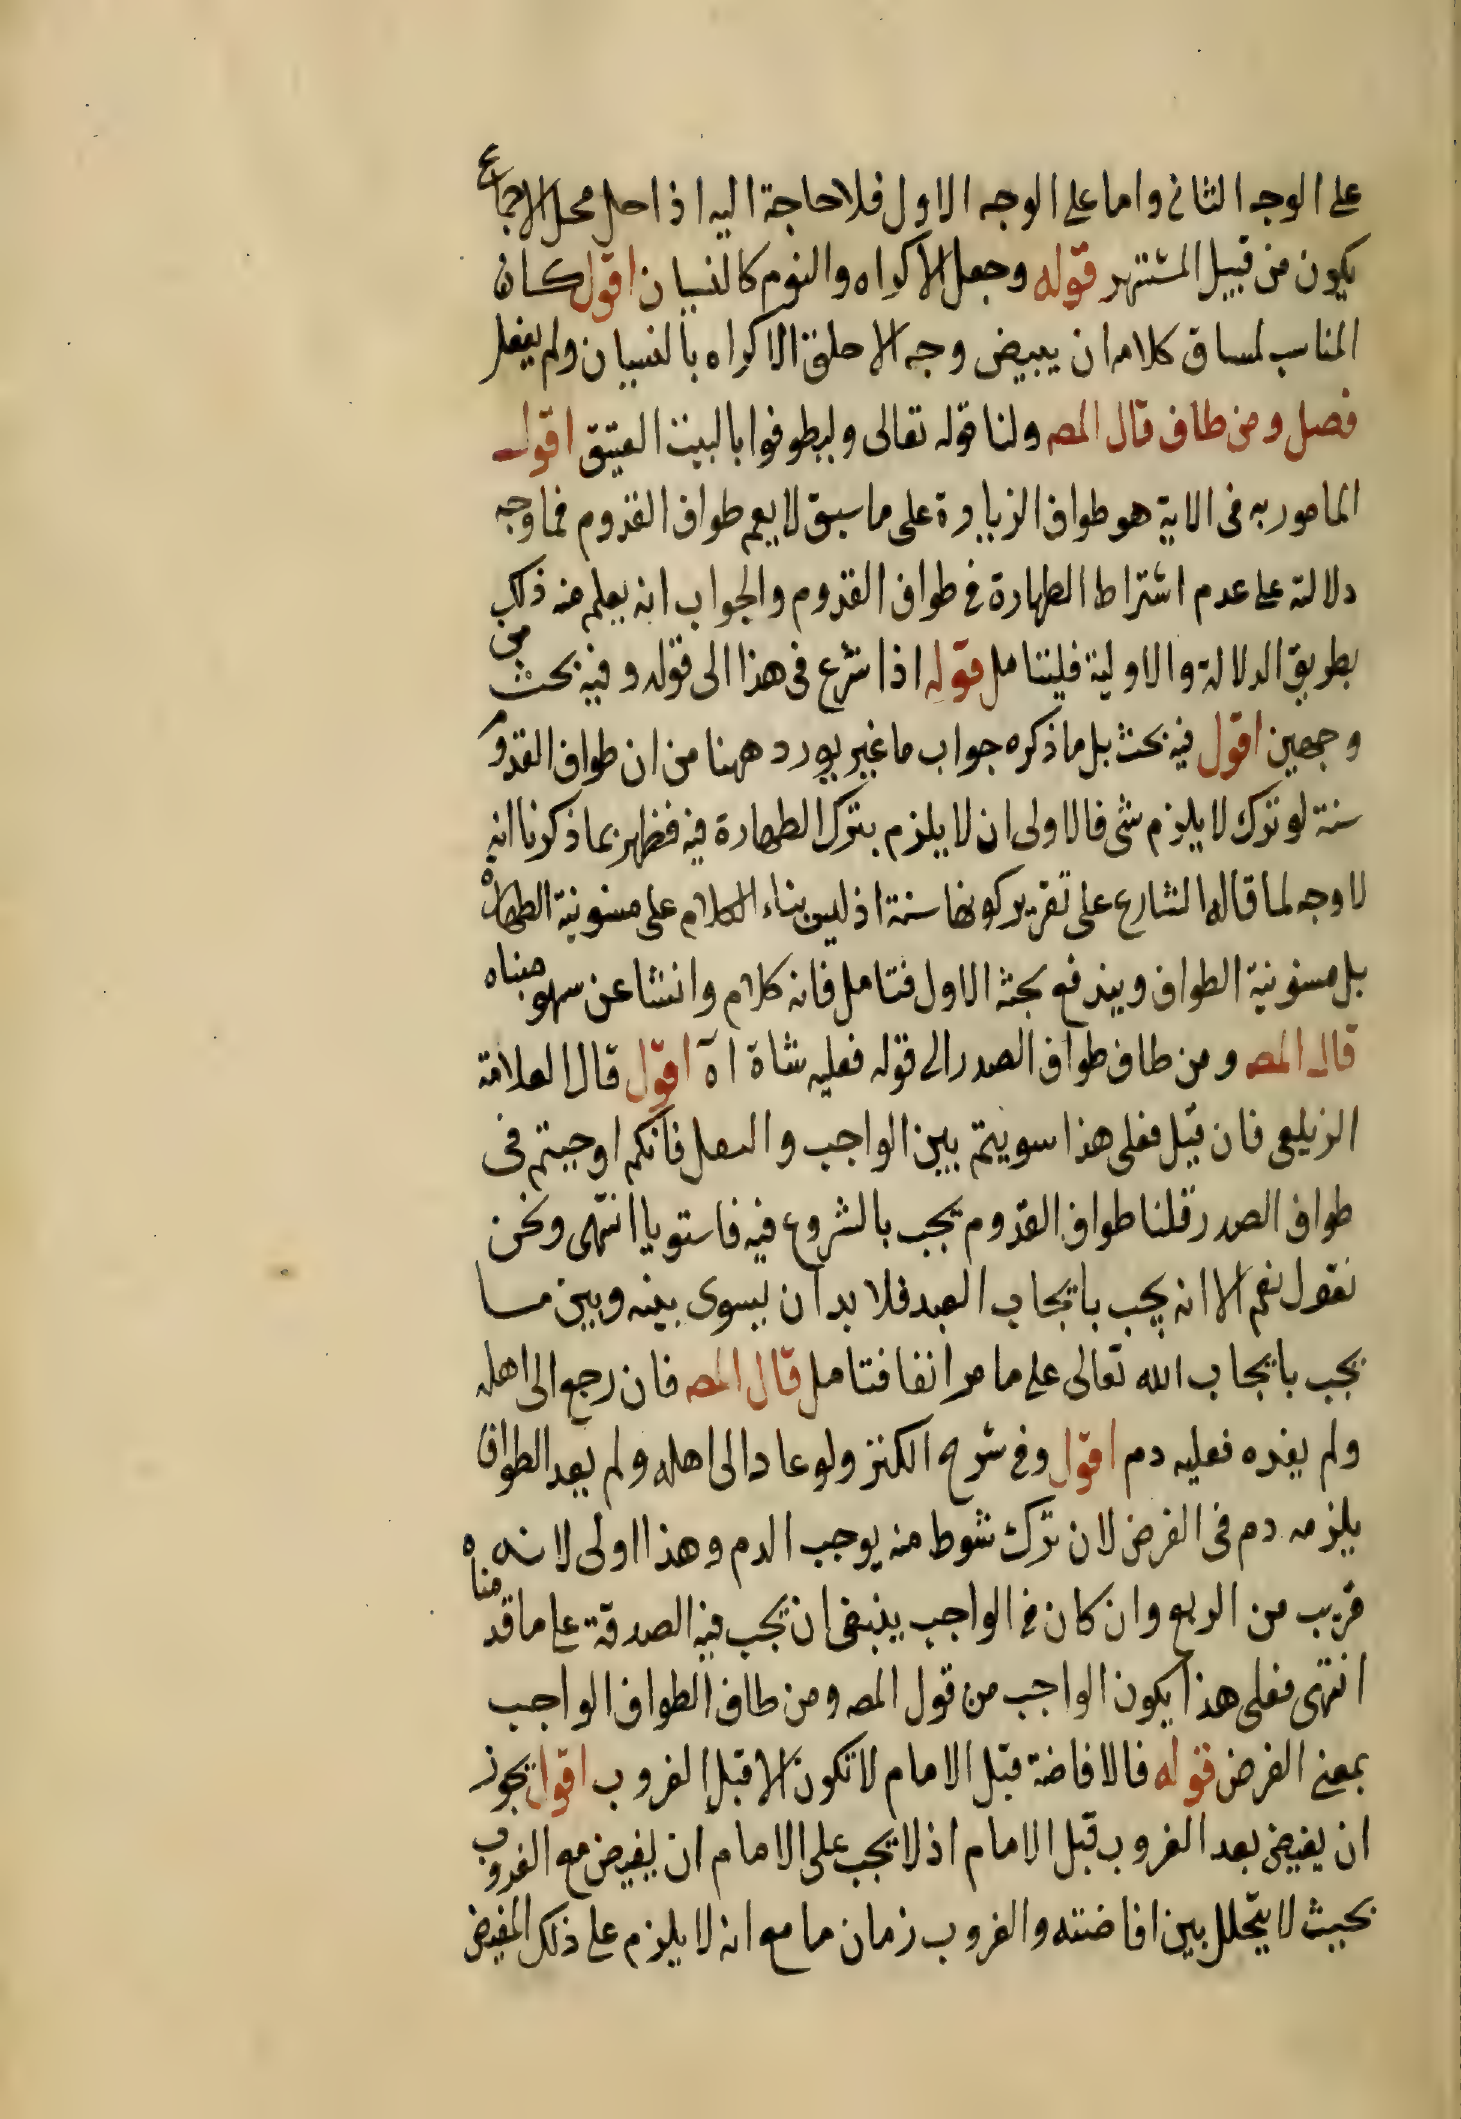 على الوجه الثانى واما على الوجه الاول فلا حاجة اليه اذا حل محل الاجماع
يكون من قبيل المشتهر قوله وجعل الاكراه والنوم كالنسيان اقول كان
المناسب لمساق كلامه ان يبيض وجه الاحلق الاكراه بالنسيان ولم يفعل
فصل ومن طاف قال المصه ولنا قوله تعالى وليطوفوا بالبيت العتيق اقول
المامور به فى الاية هو طواف الزيارة على ما سبق لا يعم طواف القدوم فما وجه
دلالته على عدم اشتراط الطهارة فى طواف القدوم والجواب انه يعلم منه ذلك
بطريق الدلالة والاولية فليتامل قوله اذا شرع فى هذا الى قوله وفيه بحث من
وجهين اقول فيه بحث بل ما ذكره جواب ما غير يورد ههنا من ان طواف القدوم
سنة لو ترك لا يلزم شى فالاولى ان لا يلزم بترك الطهارة فيه فظهر بما ذكرنا انه
لا وجه لما قاله الشارع على تقرير كونها سنة اذ ليس بناء الكلام على مسنونية الطهارة
بل مسنونية الطواف ويندفع بحثه الاول فتامل فانه كلام وانشا عن سهو مبناه
قال المصه ومن طاف طواف الصدر الى قوله فعليه شاة اه اقول قال العلامة
الزيلعى فان قيل فعلى هذا سويتم بين الواجب والنفل فانكم اوجبتم فى
طواف الصدر قلنا طواف القدوم يجب بالشروع فيه فاستويا انتهى ونحن
نقول نعم الا انه يجب بايجاب العبد فلا بد ان يسوى بينه وبين مسا
يجب بايجاب الله تعالى على ما مر انفا فتامل قال المصه فان رجع الى اهله
ولم يعده فعليه دم اقول وفى شرح الكنز ولو عاد الى اهله ولم يعد الطواف
يلزمه دم فى الفرض لان ترك شوط منه يوجب الدم وهذا اولى لانه
قريب من الربع وان كان فى الواجب ينبغى ان يجب فيه الصدقة على ما قدمناه
انتهى فعلى هذا يكون الواجب من قول المصه ومن طاف الطواف الواجب
بمعنى الفرض قوله فالافاضة قبل الامام لا تكون الا قبل الغروب اقول يجوز
ان يفيض بعد الغروب قبل الامام اذ لا يجب على الامام ان يفيض مع الغروب
بحيث لا يتخلل بين افاضته والغروب زمان ما مع انه لا يلزم على ذلك المفيض